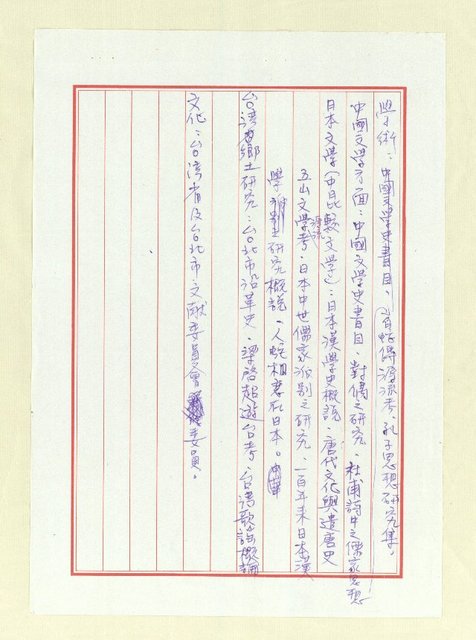 學術：中國文學史書目、白蛇傳源流考、孔子思想研究集、
中國文學方面：中國文學史書目、對偶之研究、杜甫詩中之儒家思想
日本文學（中日比較文學）：日本漢學史概說、唐代文化與遣唐史
五山文學考、源流、日本中世儒家派別之研究、一百年來日本漢
學研究概說、人蛇相妻在日本。
台灣鄉土研究：台北市沿革史、梁啓超遊台考、台灣歌謠概論
文化：台湾省及台北市文献委員會委員。